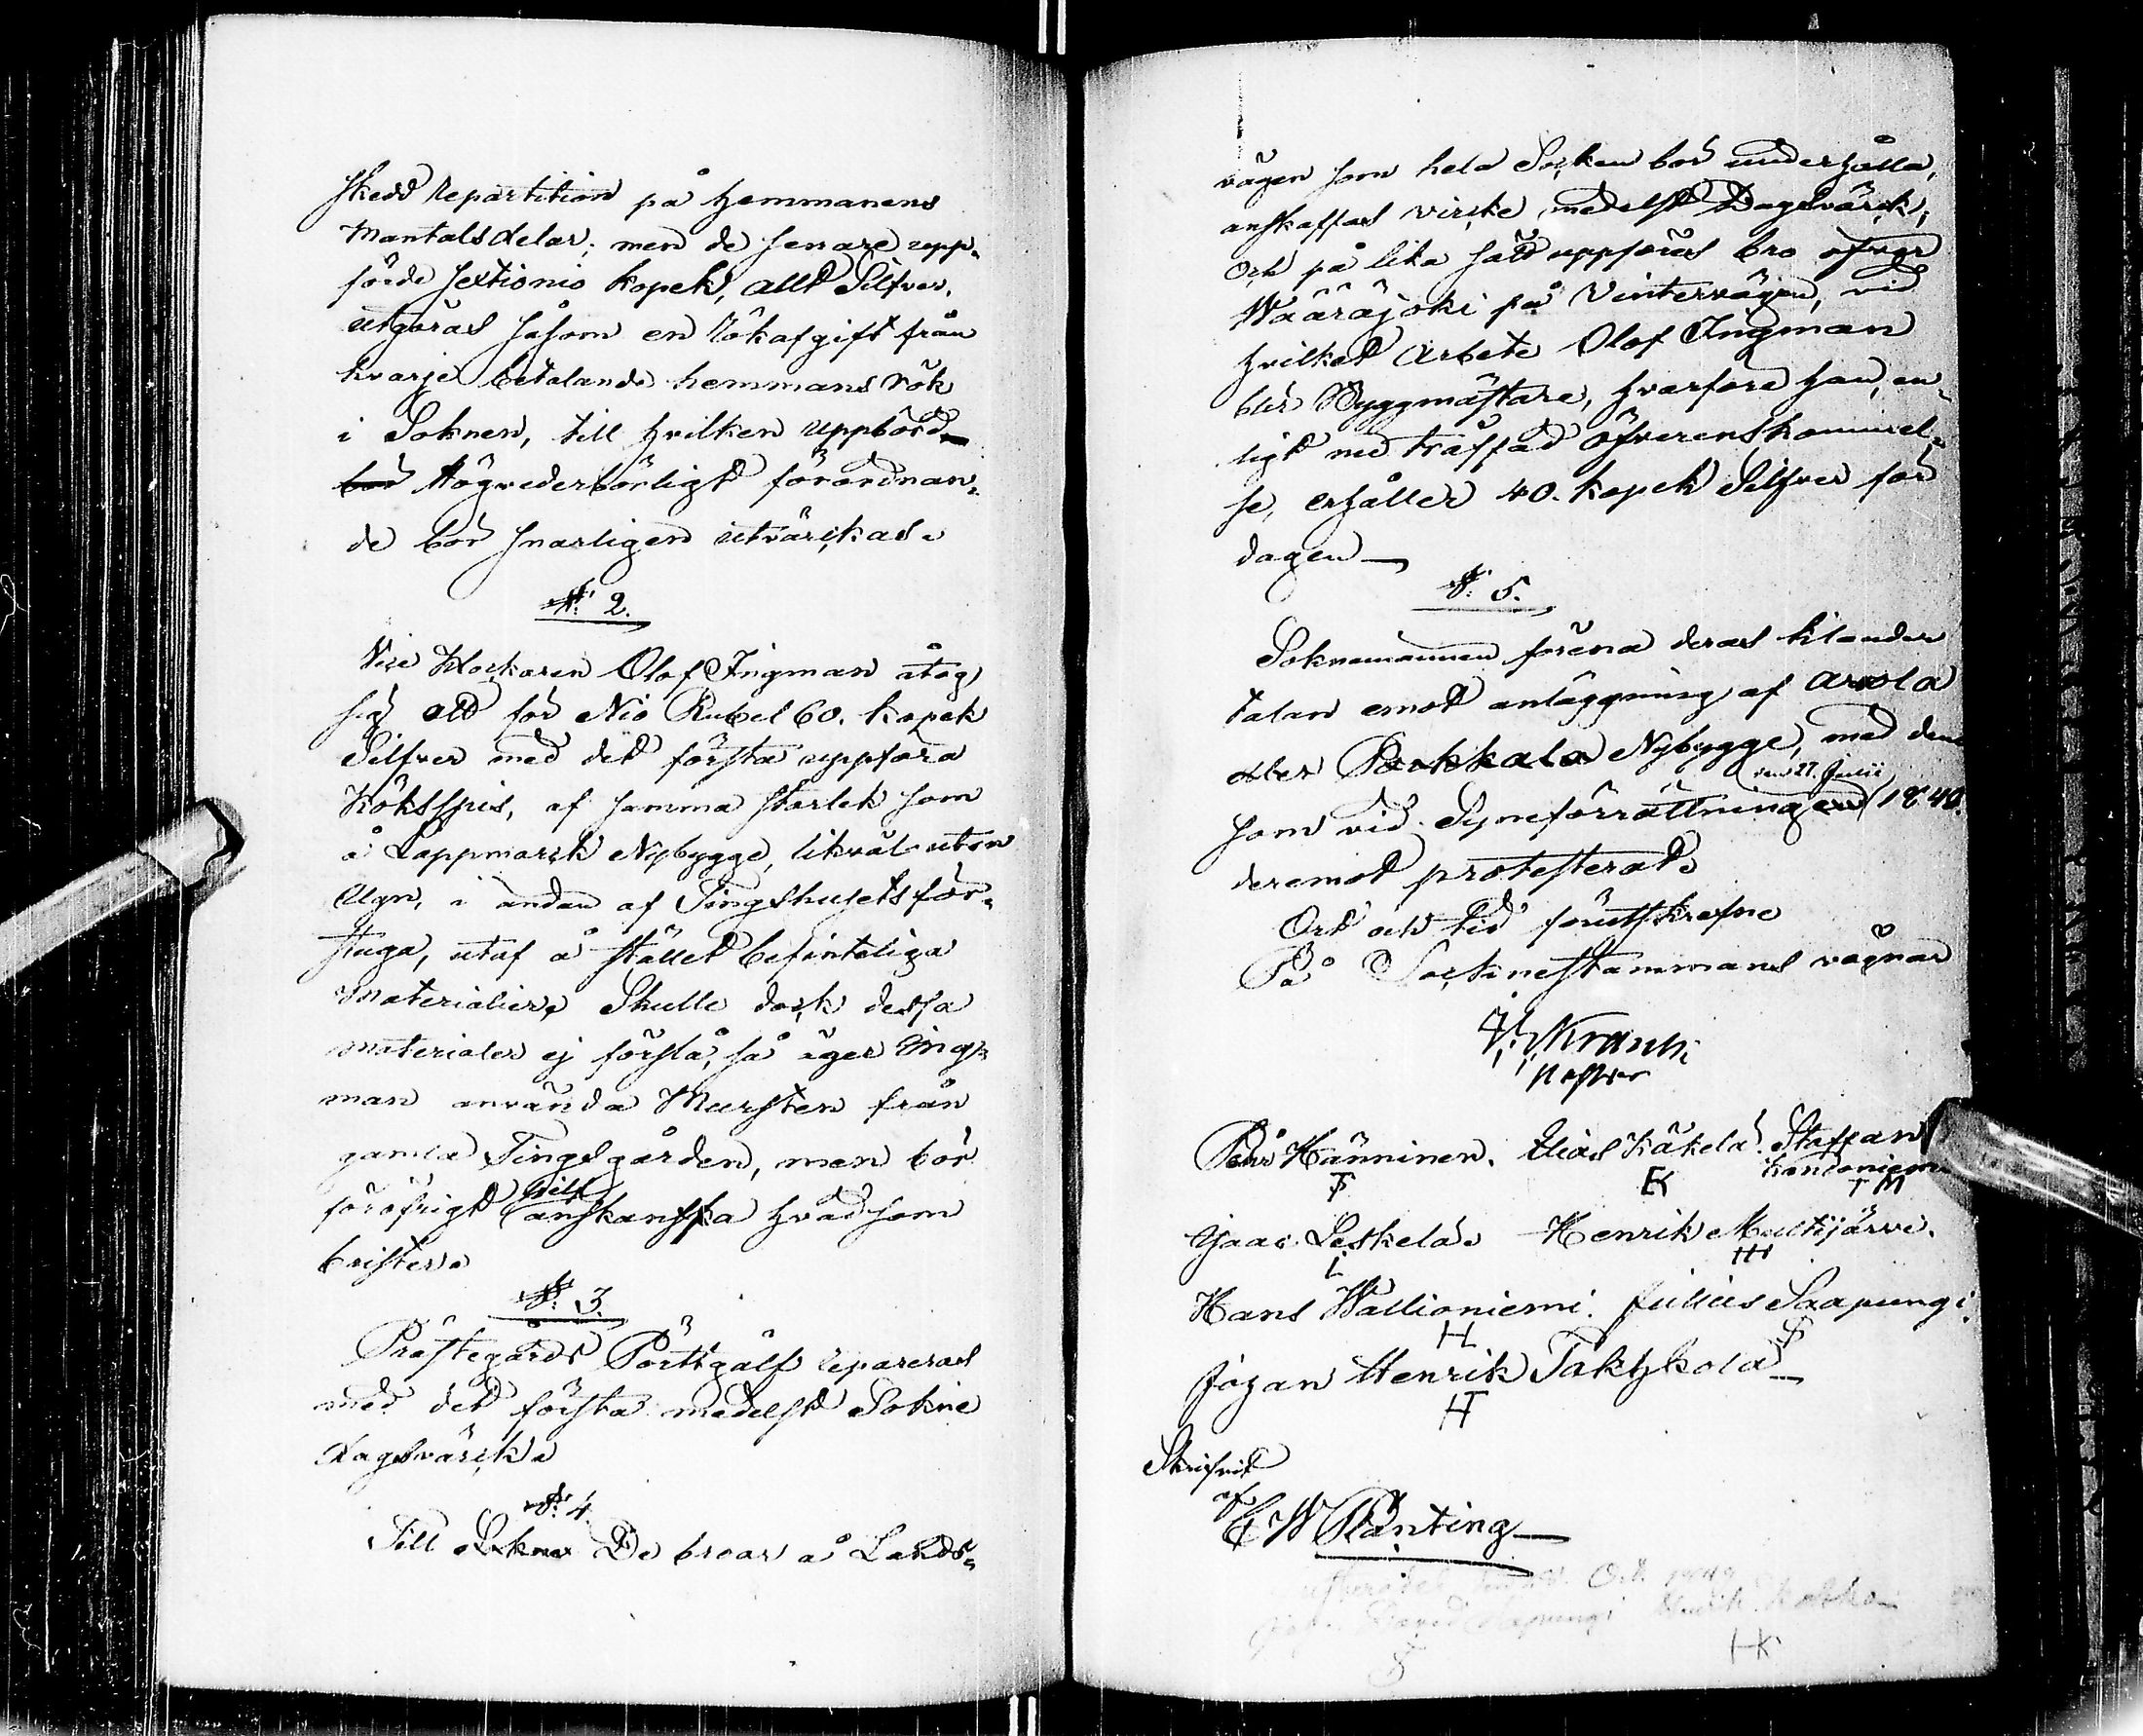 skedd repartition på hemmanens
Mantalsdelar; men de senare upp-
förde sextionio kopek, allt Silfver,
utgöras såsom en Rökafgift från
hvarje betalande hemmans rök
i Soknen, till hvilken uppbörd
bör Högvederbörligt förordnan-
de bör snarligen utvärckas.
N: 2.
Vice Klockaren Olof Ingman åtog
sig att för Nio Rubel 60. kopek
Silfver med det första uppföra
Köksspis, af samma storlek som
å Lappmarck Nybygge, likväl utan
Ugn, i ändan af Tingshusets för-
stuga, utaf å stället befinteliga
Materialier. Skulle dock dessa
materialer ej förslå, så äger Ing-
man använda Mursten från
gamla Tingsgården, men bör
föröfrigt sielf anskanffa hvad som
brister.
N: 3.
Prästegårds Pörttgålf repareras
med det första medelst Sokne
dagsvärck.
N: 4.
Till Sokne De broar å Lands-
vägen som hela Socken bör underhålla,
anskaffas virke medelst Dagsvärck;
Och på lika sätt uppföres bro öfver
Wääräjoki på Vintervägen, vid
hvilket arbete Olof Ingman
blir Byggmästare, hvarföre han, en-
ligt med träffad öfverenskommel-
se, erhåller 40. kopek Silfver för
dagen
N: 5.
Soknemännen förena deras klander
talan emot anläggning af Arola
eller Parkkala Nybygge, med dem
den 27. Julii
som vid Syneförrättningen 1840.
deremot protesterat.
Ort och tid förutskrefne
På Socknestämmans vägnar
Pastor
Pehr Hänninen. Elias Käkelä. Staffan
Kontoniemi
EK
Isaac Leskelä. Henrik Multijärvi.
L
Hans Wallioniemi. Julius Saapungi.
H
Johan Henrik Takkkola
HT
Skrifvit
af
E W Planting
HK